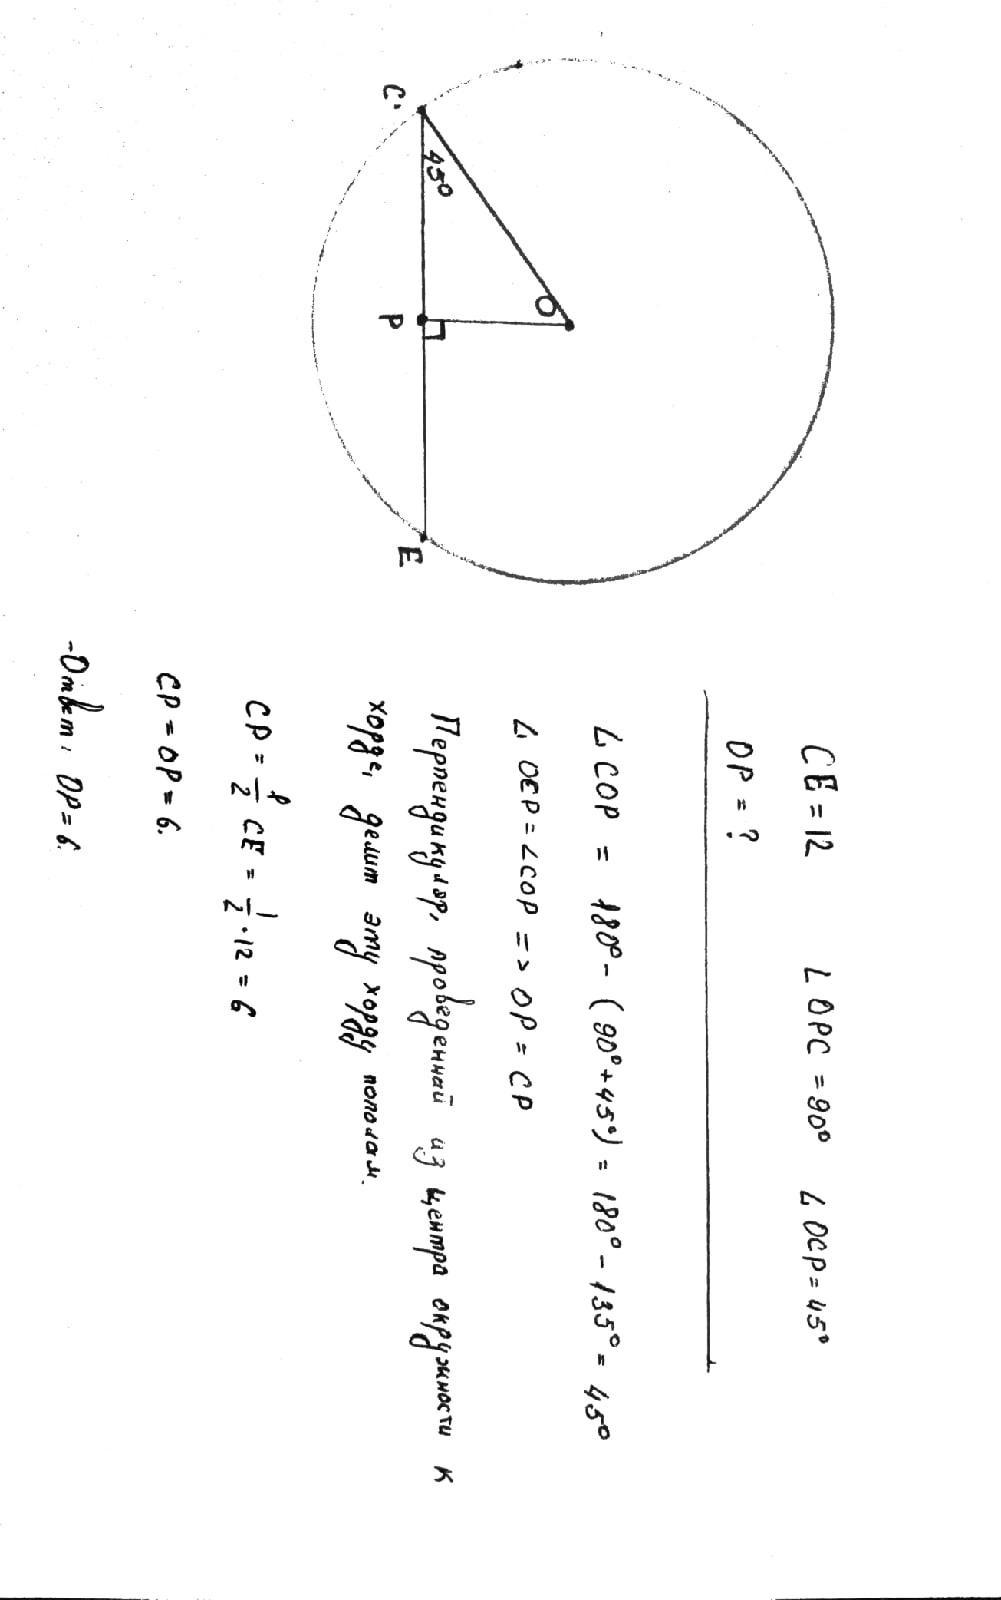 C
45°
O
P
E
CE = 12 ∠OPC = 90° ∠OCP = 45°
OP = ?
∠COP = 180° - (90° + 45°) = 180° - 135° = 45°
∠OCP = ∠COP => OP = CP
Перпендикуляр, проведенный из центра окружности к
хорде, делит эту хорду пополам.
CP = 1/2 CE = 1/2 · 12 = 6
CP = OP = 6.
Ответ: OP = 6.